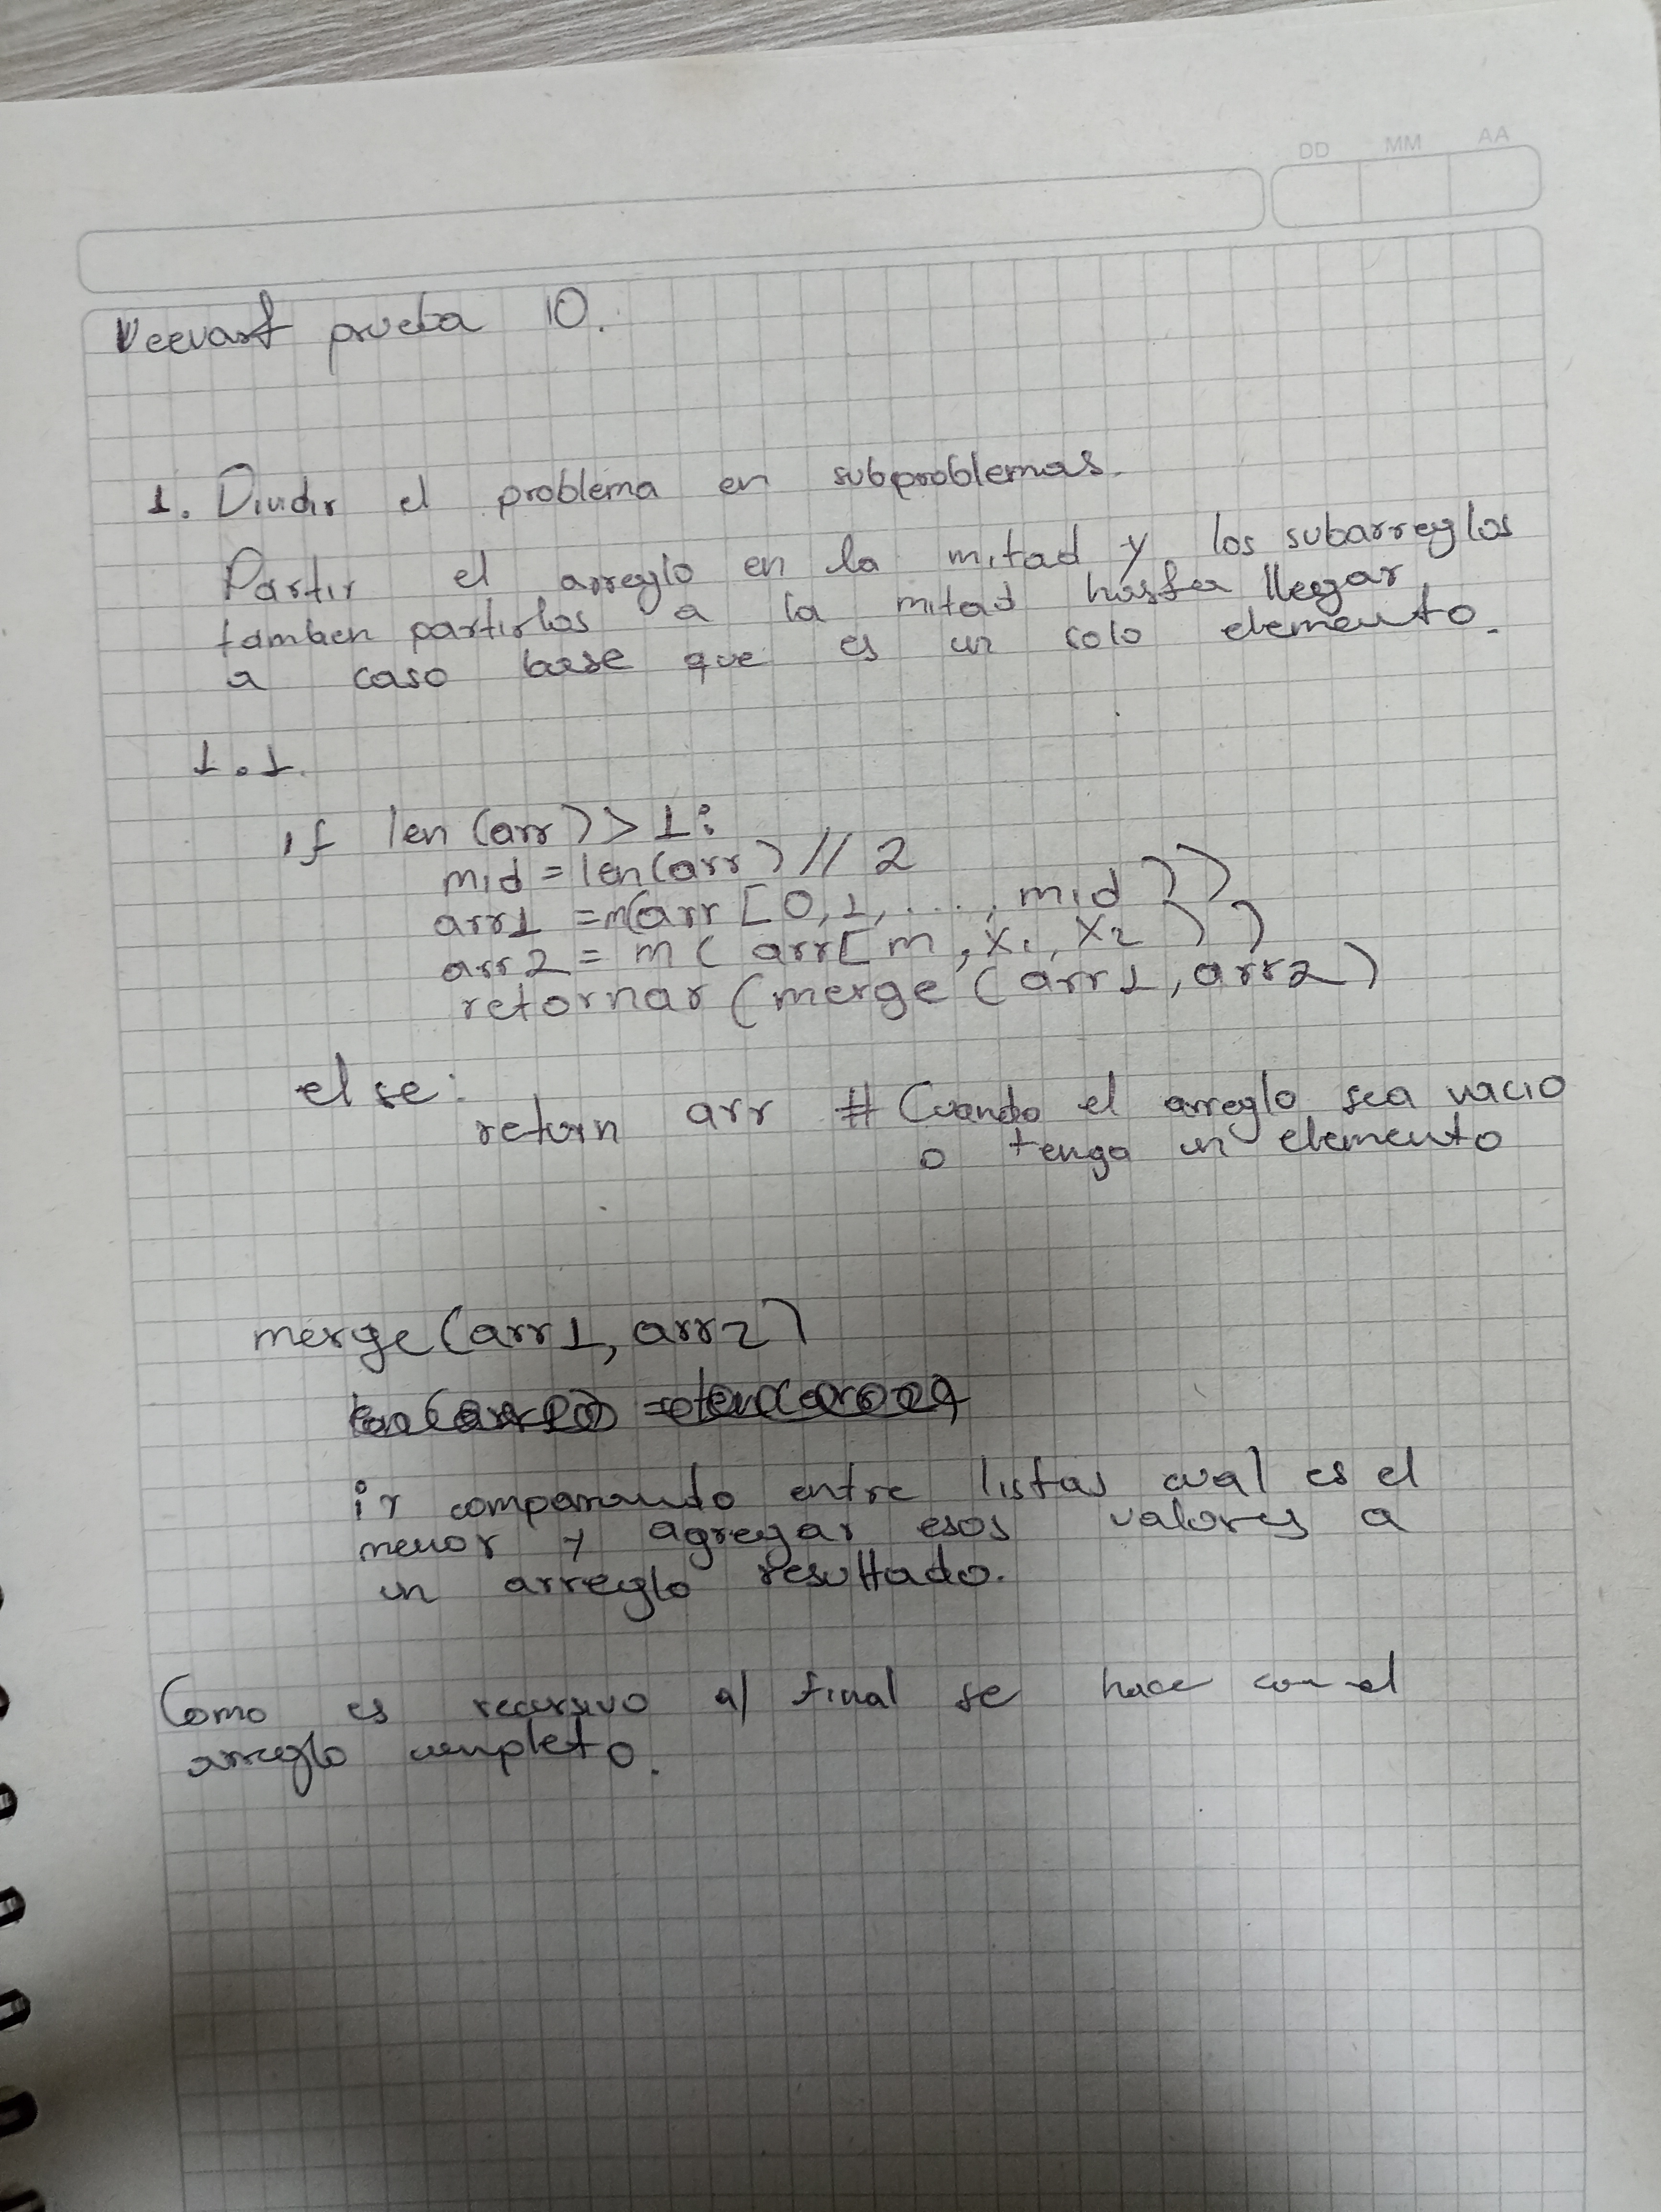 DD MM AA
prueba 10.
1. Dividir el problema en subproblemas.
Partir el arreglo en la mitad y los subarreglos
tambien partirlos a la mitad hasta llegar
a caso base que es un solo elemento.
1.1.
if len(arr) > 1:
mid = len(arr) // 2
arr1 = m(arr[0,1,...,mid))
arr2 = m(arr[m, x1, x2))
retornar (merge (arr1, arr2)
else:
return arr # Cuando el arreglo sea vacio
o tenga un elemento
merge(arr1, arr2)
ir comparando entre listas cual es el
menor y agregar esos valores a
un arreglo resultado.
Como es recursivo al final se hace con el
arreglo completo.